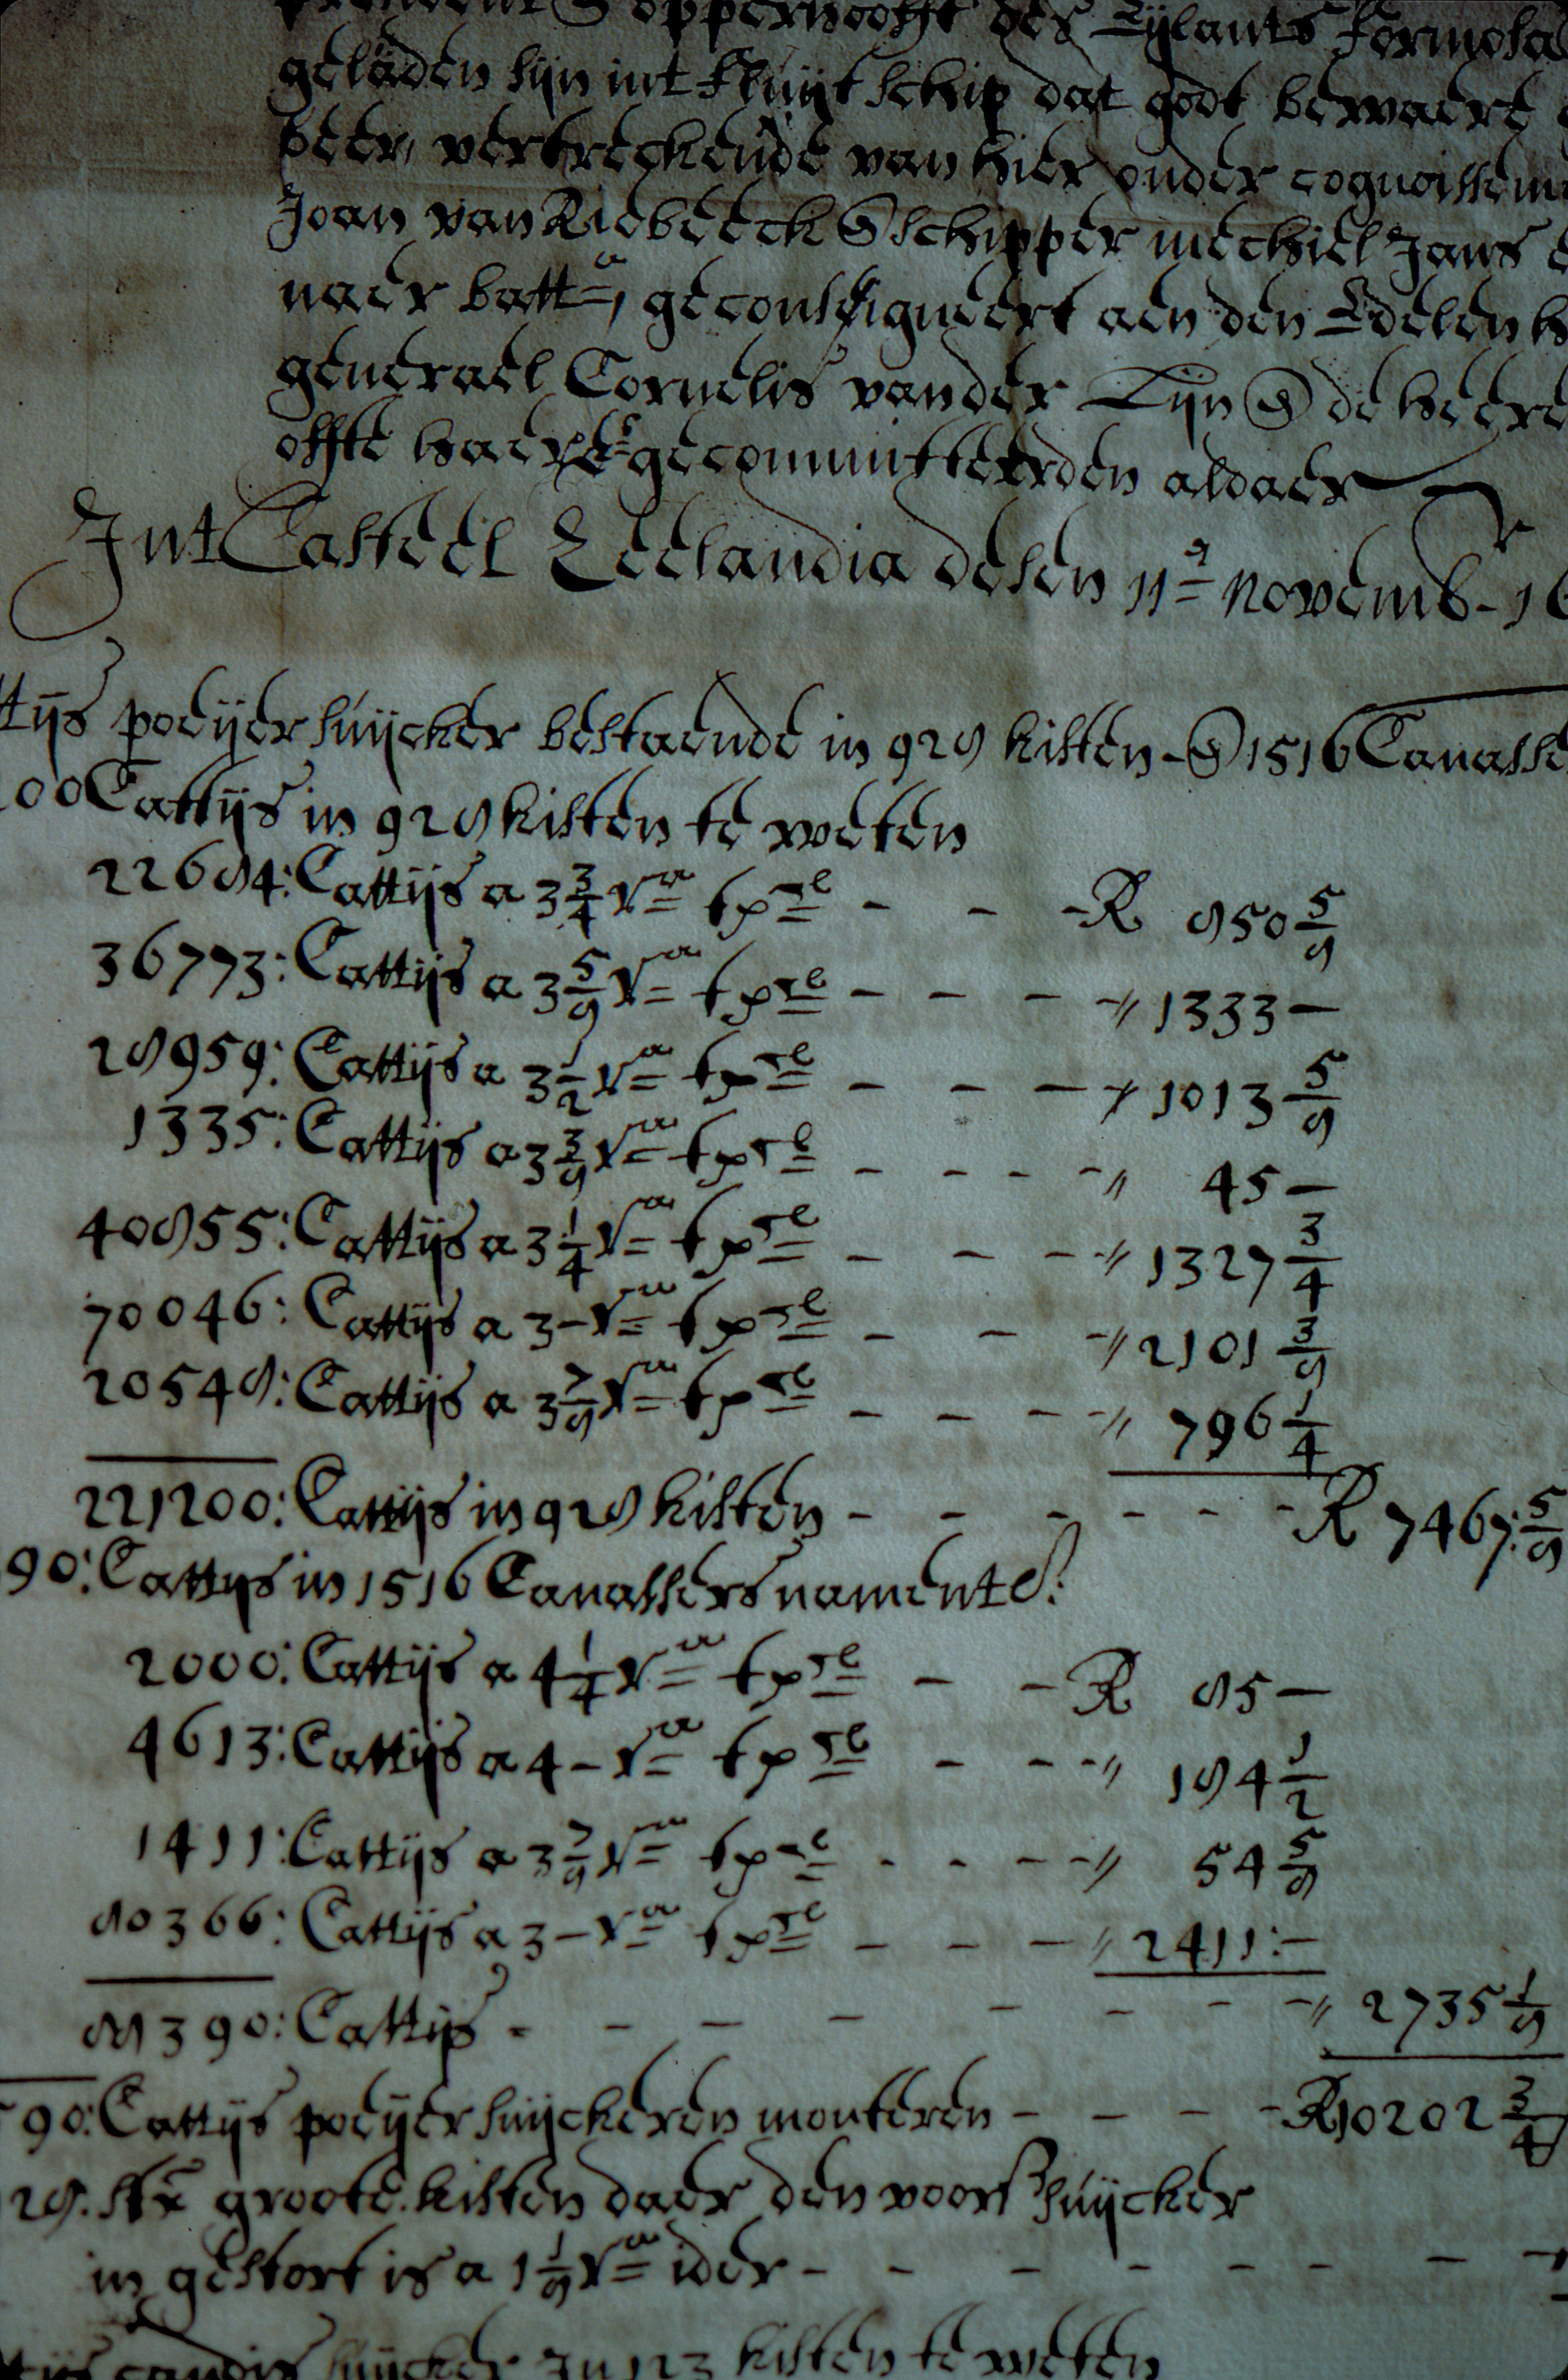 president & opperhooft des Eylants Formosa
geladen sijn int fluijtschip dat godt bewaere
beer, vertreckende van hier onder cognoissem
Joan van Riebeeck & schipper mechiel Jans
naer batt^a, geconsigneert aen den Edelen h
generael Cornelis vander Lijn & de heere
offte haer E^s gecommitteerden aldaer
Int Casteel Zeelandia desen 11^e Novemb^r 16
ttijs poeijersuijcker bestaende in 928 kisten - & 1516 Canasse
00 Cattijs in 928 kisten te weten
22684: Cattijs a 3 3/4 r^a t p^cl - - - R 850 5/8
36773: Cattijs a 3 5/8 r^a t p^cl - - - - " 1333 -
28959: Cattijs a 3 1/2 r^a t p^cl - - - " 1013 5/8
1335: Cattijs a 3 3/8 r^a t p^cl - - - - " 45 -
40855: Cattijs a 3 1/4 r^a t p^cl - - - " 1327 3/4
70046: Cattijs a 3 - r^a t p^cl - - - " 2101 3/8
20548: Cattijs a 3 7/8 r^a t p^cl - - - - " 796 1/4
221200: Cattijs in 928 kisten - - - - - - R 7467: 5/8
90: Cattijs in 1516 Canassers namentl:
2000: Cattijs a 4 1/4 r^a t p^cl - - R 85 -
4613: Cattijs a 4 - r^a t p^cl - - - " 184 1/2
1411: Cattijs a 3 7/8 r^a t p^cl - - - - " 54 5/8
80366: Cattijs a 3 - r^a t p^cl - - - " 2411: -
88390: Cattijs - - - - - - - - " 2735 1/8
90: Cattijs poeijersuijckeren monteren - - - - R 10202 3/4
28. stx groote kisten daer den voorsz suijcker
in gestort is a 1 1/8 r^a ider - - - - - - - -
ttijs candij suijcker In 123 kisten te weten